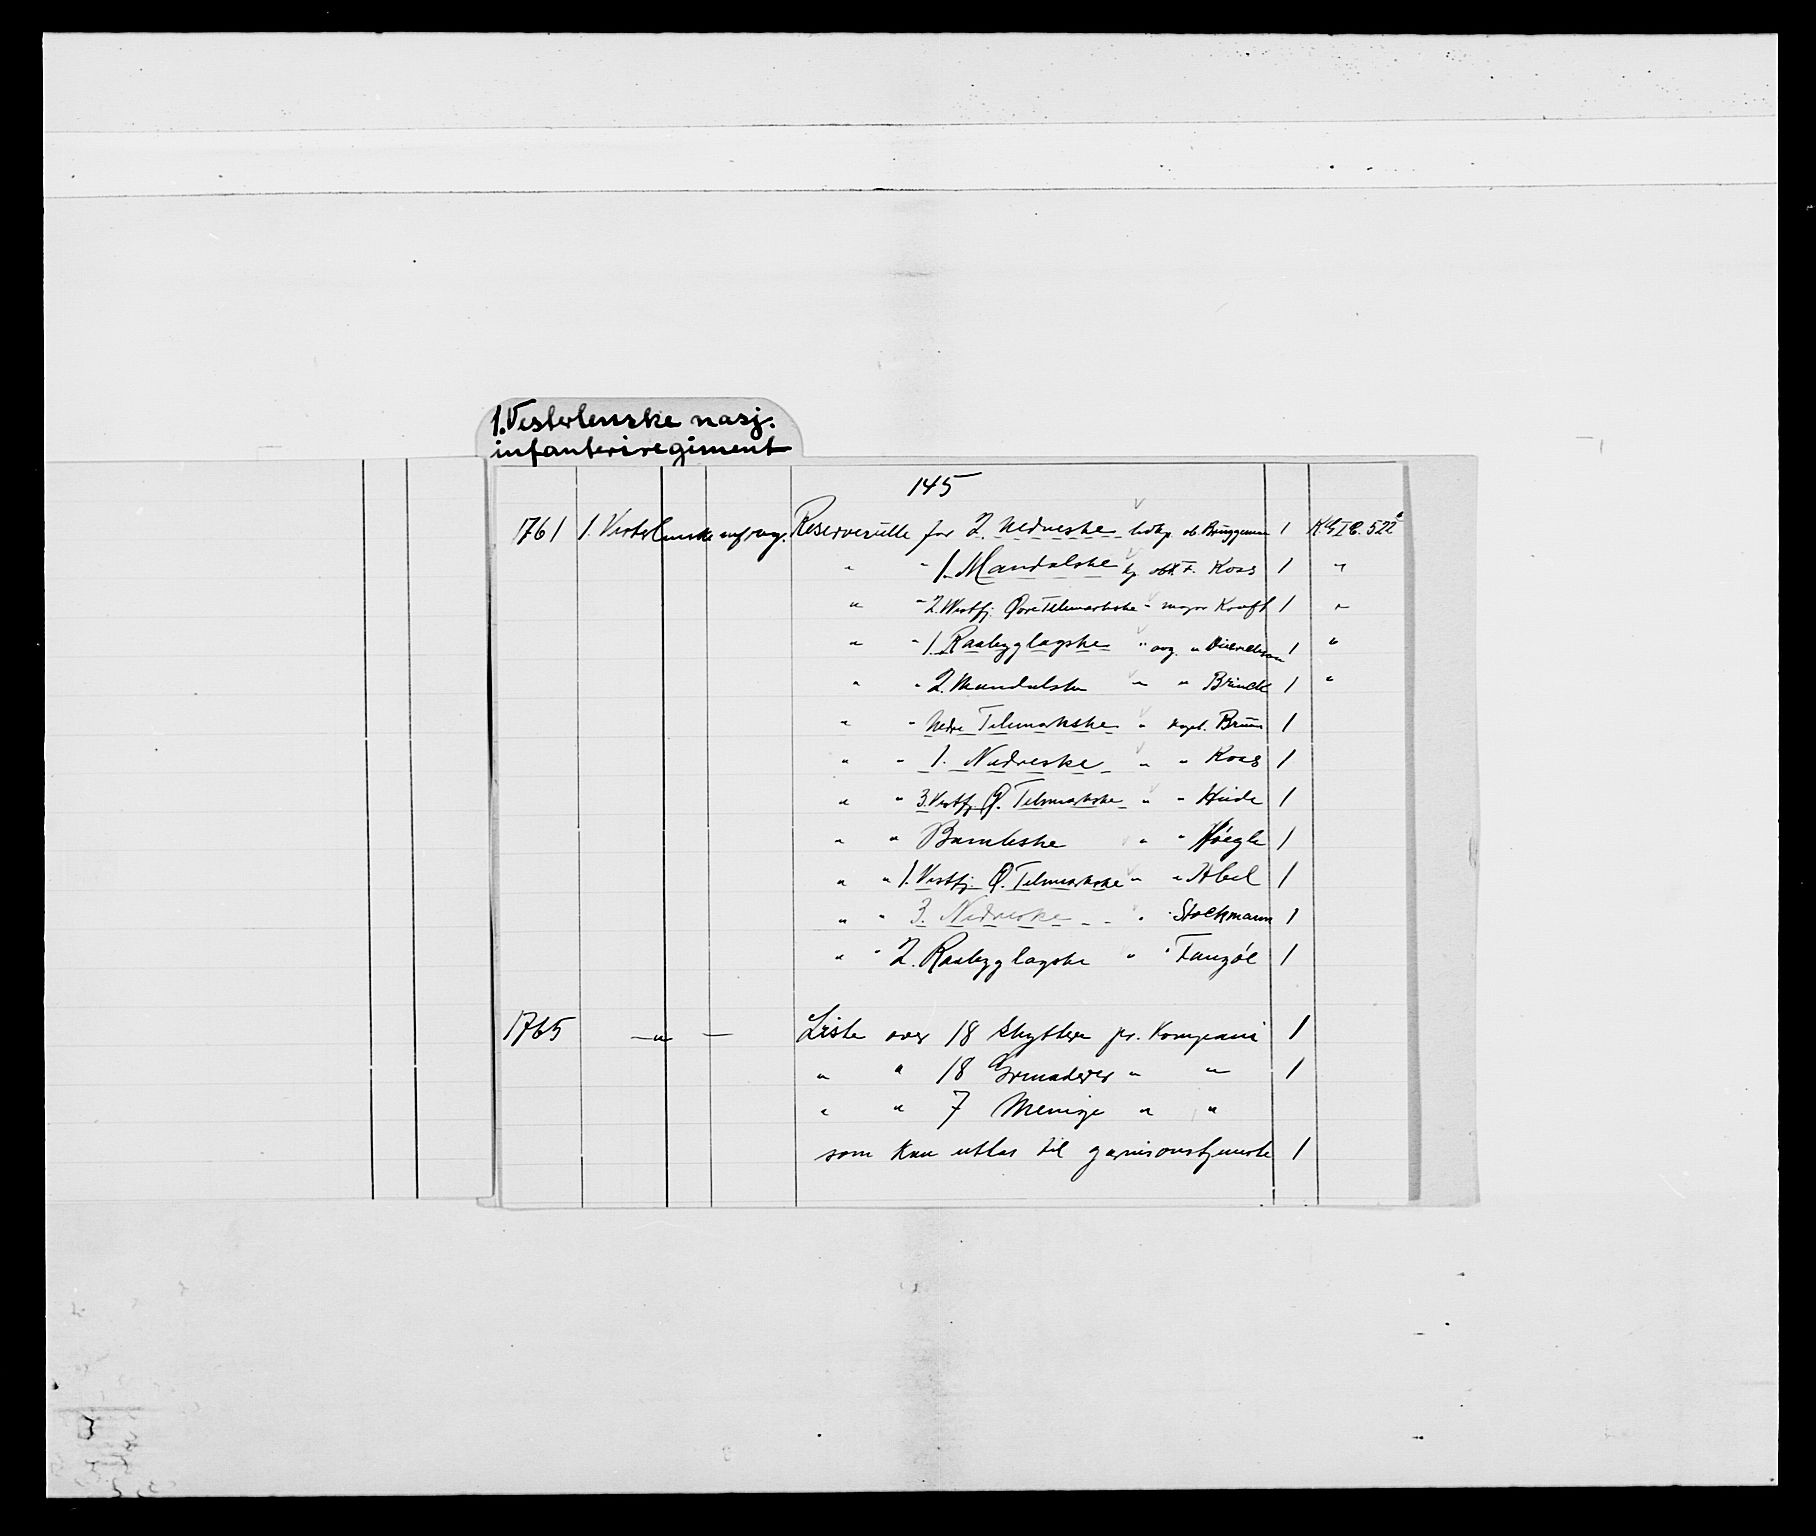 1. Vesterlenske nasj.
infanteriregiment
145
1761 1. Vesterlenske inf. reg. Reserverulle for 2. Nedneske livkp. ob. Brüggeman 1 K.G.I.C. 522
" " 1. Mandalske kp. obl. F. Koas 1 "
" " 2. Westfj. Øvre Telemarkske " major Kraft 1 "
" " 1. Raabyglagske " " 1 "
" " 2. Mandalske " " Brinck 1 "
" " Nedre Telemarkske " kapt. Bruun 1
" " 1. Nedneske " " Koas 1
" " 3. Vestfj. Ø. Telemarkske " " Hvide 1
" " Bambleske " " 1
" " 1. Vestfj. Ø. Telemarkske " " Abel 1
" " 3. Nedneske " " Stockmann 1
" " 2. Raabyglagske " " 1
1765 — " — Liste over 18 Skyttere pr. Kompani 1
" " 18 Grenaderer " " 1
" " 7 Menige " "
som kan uttas til garnisonstjeneste 1